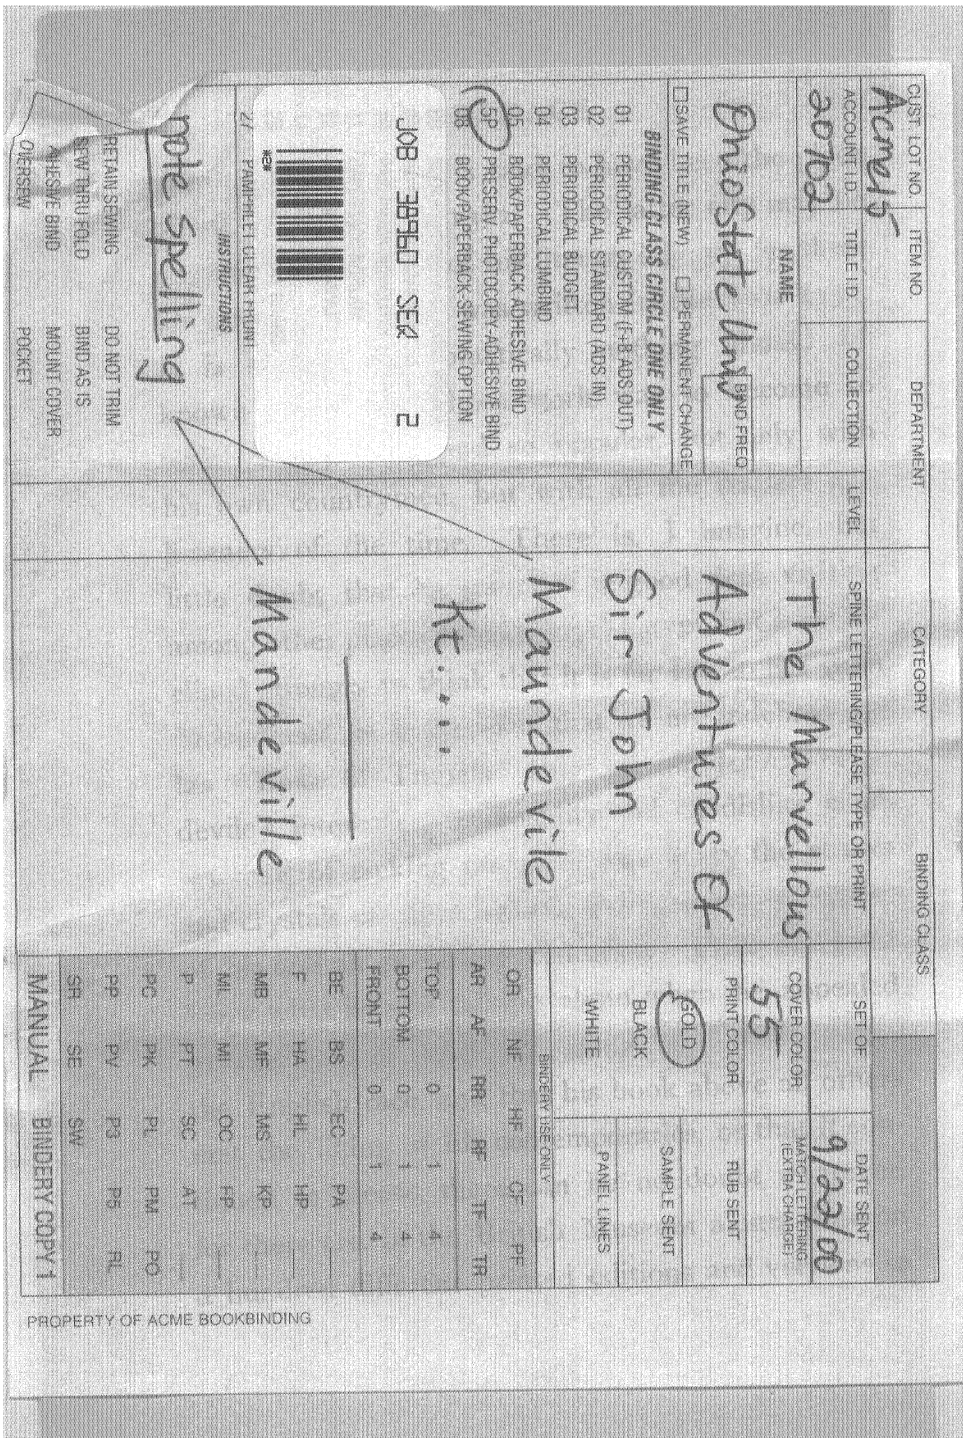 CUST. LOT NO. ITEM NO DEPARTMENT CATEGORY BINDING CLASS SET OF DATE SENT
Acme15 9/22/00
ACCOUNT I.D. TITLE I.D. COLLECTION LEVEL SPINE LETTERING/PLEASE TYPE OR PRINT COVER COLOR MATCH LETTERING
(EXTRA CHARGE)
20702 55
NAME
Ohio State Univ
BIND FREQ
☐ SAVE TITLE (NEW) ☐ PERMANENT CHANGE
BINDING CLASS CIRCLE ONE ONLY
01 PERIODICAL CUSTOM (F+B ADS OUT)
02 PERIODICAL STANDARD (ADS IN)
03 PERIODICAL BUDGET
04 PERIODICAL LUMBIND
05 BOOK/PAPERBACK ADHESIVE BIND
5P PRESERV. PHOTOCOPY-ADHESIVE BIND
08 BOOK/PAPERBACK SEWING OPTION
JOB 38960 SEQ 2
*2*
27 PAMPHLET CLEAR FRONT
INSTRUCTIONS
note spelling
RETAIN SEWING DO NOT TRIM
SEW THRU FOLD BIND AS IS
ADHESIVE BIND MOUNT COVER
OVERSEW POCKET
The Marvellous
Adventures Of
Sir John
Maundevile
Kt....
Mandeville
PRINT COLOR RUB SENT
GOLD SAMPLE SENT
BLACK
WHITE PANEL LINES
BINDERY USE ONLY
OR NF HF CF PF
AR AF RR RF TF TR
TOP 0 1 4
BOTTOM 0 1 4
FRONT 0 1 4
BE BS EC PA
F HA HL HP
MB MF MS KP
ML MI OC FP
P PT SC AT
PC PK PL PM PO
PP PV P3 P5 RL
SR SE SW
MANUAL BINDERY COPY 1
PROPERTY OF ACME BOOKBINDING